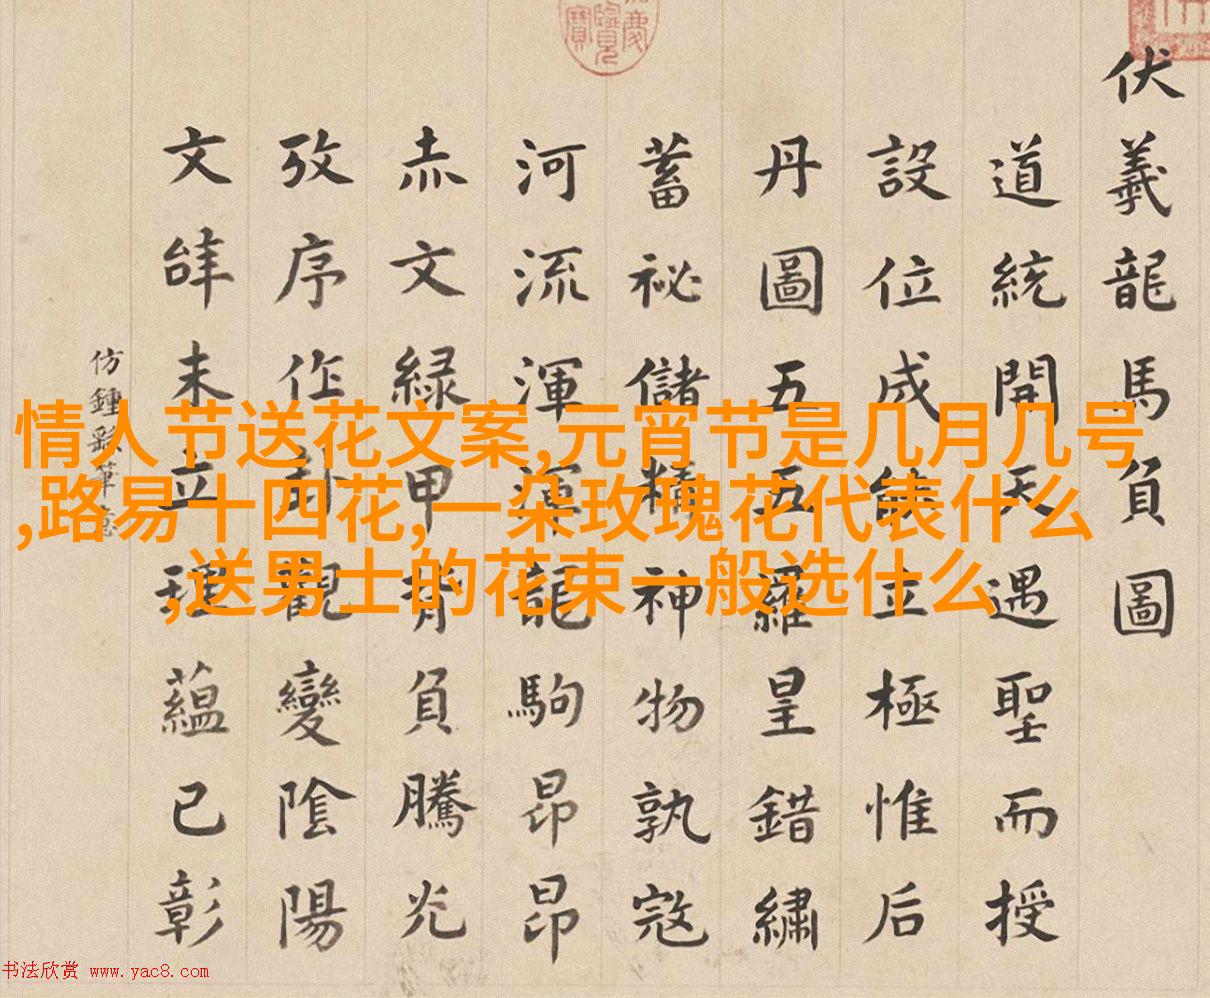 伏羲龍馬負圖
道統開天遇聖而授
設位成能立極惟后
丹圖五五羅皇錯繡
蓄祕儲精神物孰寇
河流渾渾龍駒昂昂
赤文緑甲背負騰光
攷序作卦觀變陰陽
文辭未立理蘊已彰
仿鍾繇筆意
情人节送花文案,元宵节是几月几号
,路易十四花,一朵玫瑰花代表什么
,送男士的花束一般选什么
书法欣赏 www.yac8.com